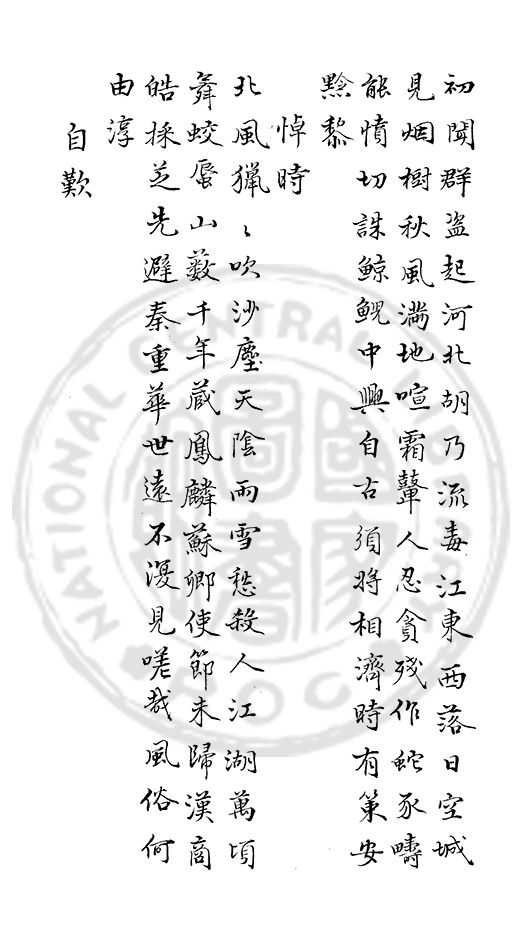 初聞群盗起河北胡乃流毒江東西落日空城
見烟樹秋風滿地喧霜鼙人忍貪殘作蛇豕疇
能憤切誅鯨鯢中興自古須將相濟時有策安
黔黎
悼時
北風獵〻吹沙塵天陰雨雪愁殺人江湖萬頃
舞蛟蜃山藪千年藏鳳麟蘇卿使節未歸漢商
皓採芝先避秦重華世遠不復見嗟哉風俗何
由淳
自歎
NATIONAL CENTRAL